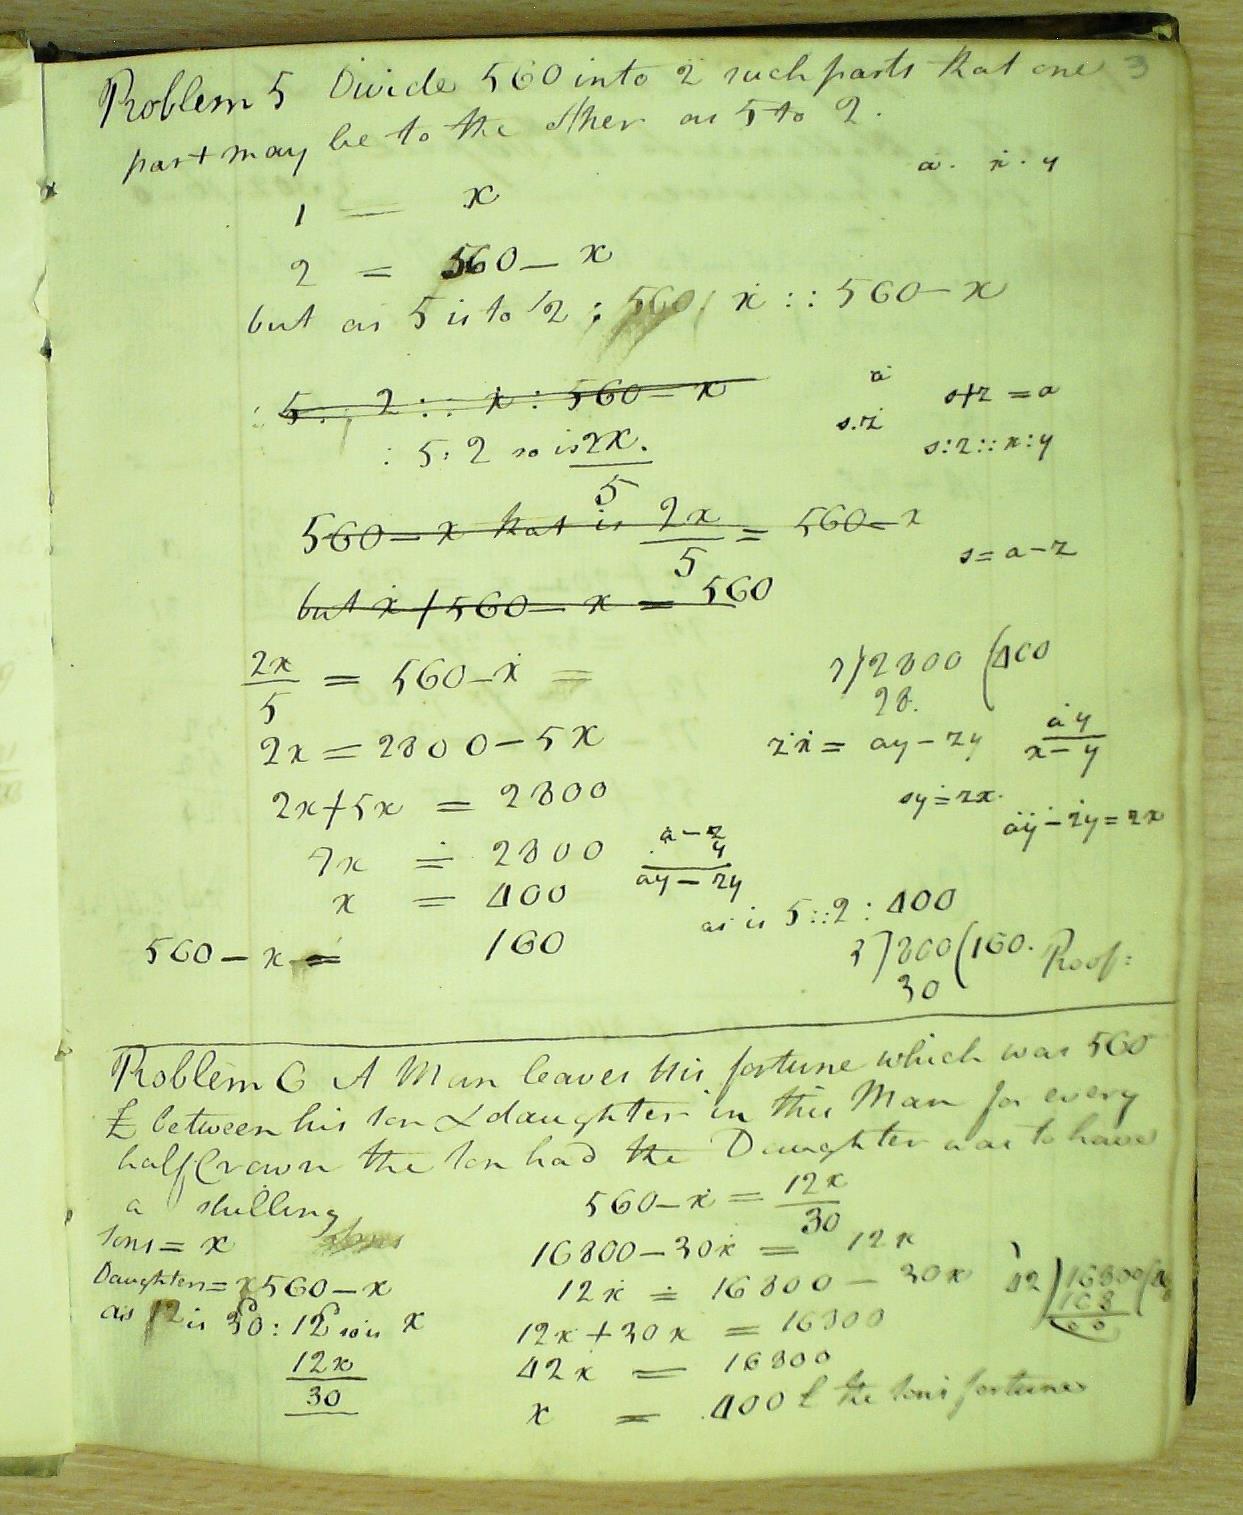 3
Problem 5 Divide 560 into 2 such parts that one
part may be to the other as 5 to 2.
a. x. y
1 = x
2 = 560 – x
but as 5 is to 2 : 560 x :: 560 – x
5 : 2 :: x : 560 – x
a
s+z = a
s.z
: 5 : 2 so is 2x/5
s:z::x:y
560 – x that is 2x/5 = 560 – x
s = a – z
but x + 560 – x = 560
2x/5 = 560 – x =
7)2800(400
28.
2x = 2800 – 5x
zx = ay – zy
ay/x – y
2x + 5x = 2800
sy = zx.
ay – zy = zx
7x = 2800
a – z
y
ay – zy
x = 400
as is 5::2 : 400
560 – x = 160
5)800(160. Proof:
30
Problem 6 A Man leaves his fortune which was 560
£ between his son & daughter in this Man for every
half Crown the son had the Daughter was to have
a shilling
560 – x = 12x/30
Sons = x
16800 – 30x = 12x
Daughters = x 560 – x
12x = 16800 – 30x
42)16800(4
168
00
as 12 is 30 : 12 so is x
12x + 30x = 16800
12x/30
42x = 16800
x = 400 £ the sons fortune